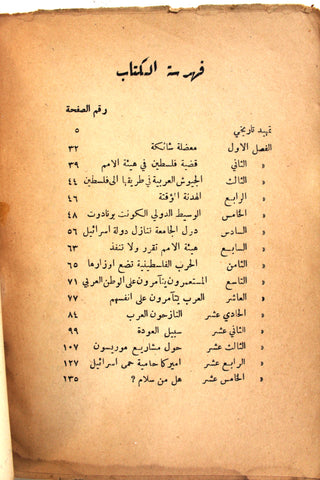 فهرسة الكتاب
رقم الصفحة
تمهيد تاريخي ٥
الفصل الاول معضلة شائكة ٣٢
« الثاني قضية فلسطين في هيئة الامم ٣٩
« الثالث الجيوش العربية في طريقها الى فلسطين ٤٤
« الرابع الهدنة المؤقتة ٤٦
« الخامس الوسيط الدولي الكونت برنادوت ٤٨
« السادس دول الجامعة تنازل دولة اسرائيل ٥٦
« السابع هيئة الامم تقرر ولا تنفذ ٦٣
« الثامن الحرب الفلسطينية تضع اوزارها ٦٥
« التاسع المستعمرون يتآمرون على الوطن العربي ٧١
« العاشر العرب يتآمرون على انفسهم ٧٧
« الحادي عشر النازحون العرب ٨٤
« الثاني عشر سبيل العودة ٩٩
« الثالث عشر حول مشاريع موريسون ١٠٧
« الرابع عشر اميركا حامية حمى اسرائيل ١٢٧
« الخامس عشر هل من سلام ؟ ١٣٥